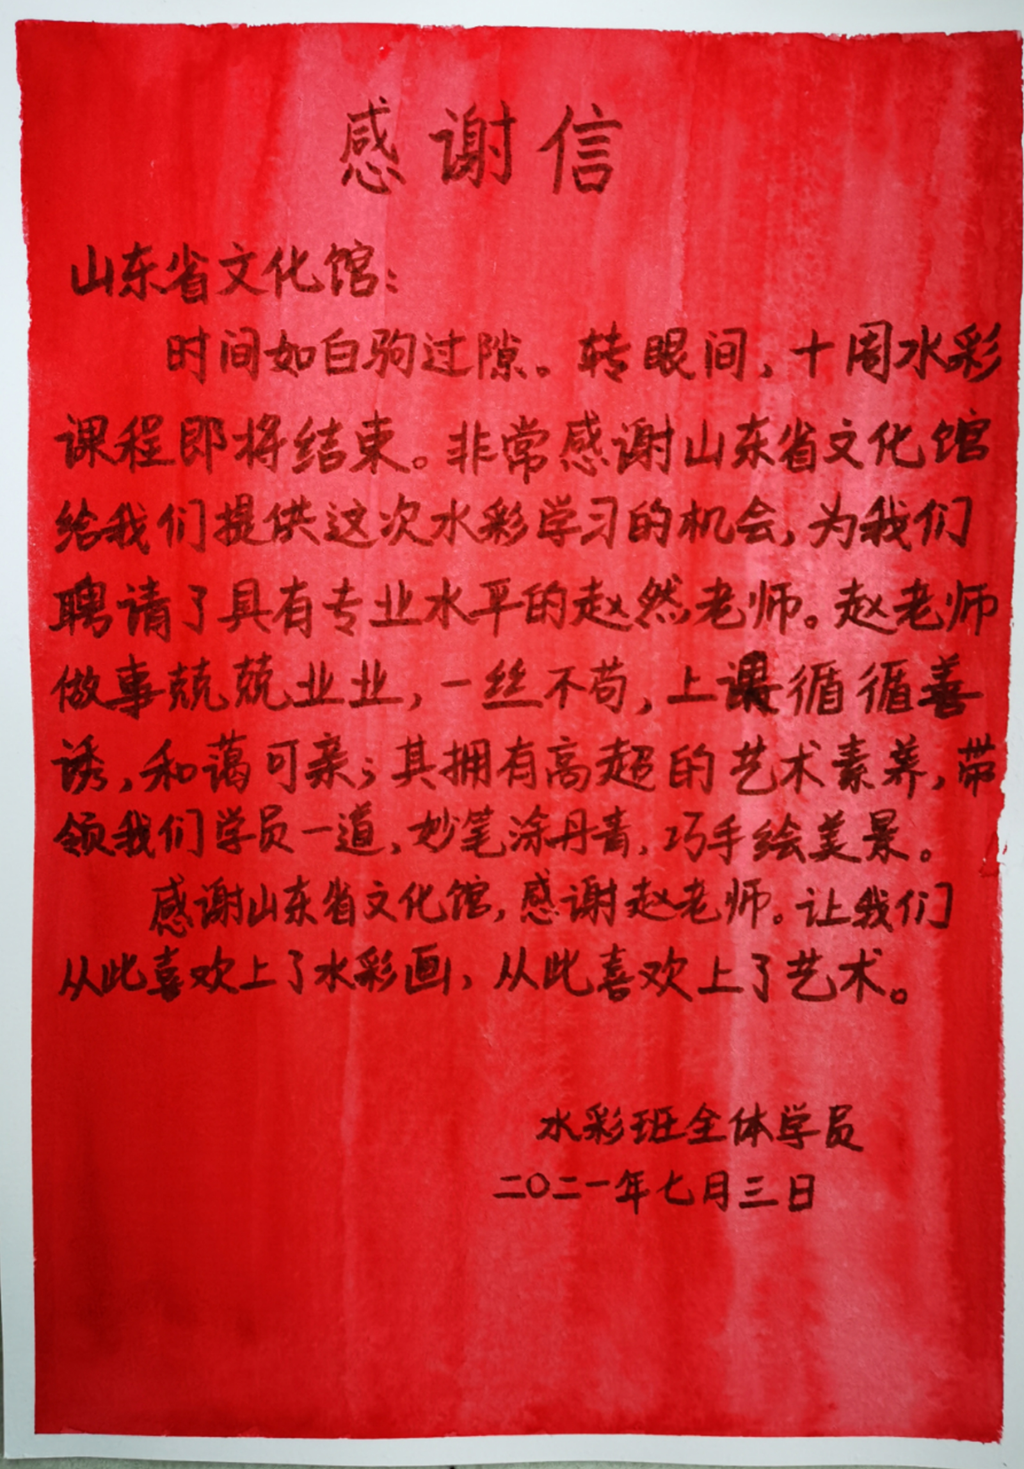 感谢信
山东省文化馆：
时间如白驹过隙。转眼间，十周水彩
课程即将结束。非常感谢山东省文化馆
给我们提供这次水彩学习的机会，为我们
聘请了具有专业水平的赵然老师。赵老师
做事兢兢业业，一丝不苟，上课循循善
诱，和蔼可亲；其拥有高超的艺术素养，带
领我们学员一道，妙笔涂丹青，巧手绘美景。
感谢山东省文化馆，感谢赵老师。让我们
从此喜欢上了水彩画，从此喜欢上了艺术。
水彩班全体学员
二〇二一年七月三日